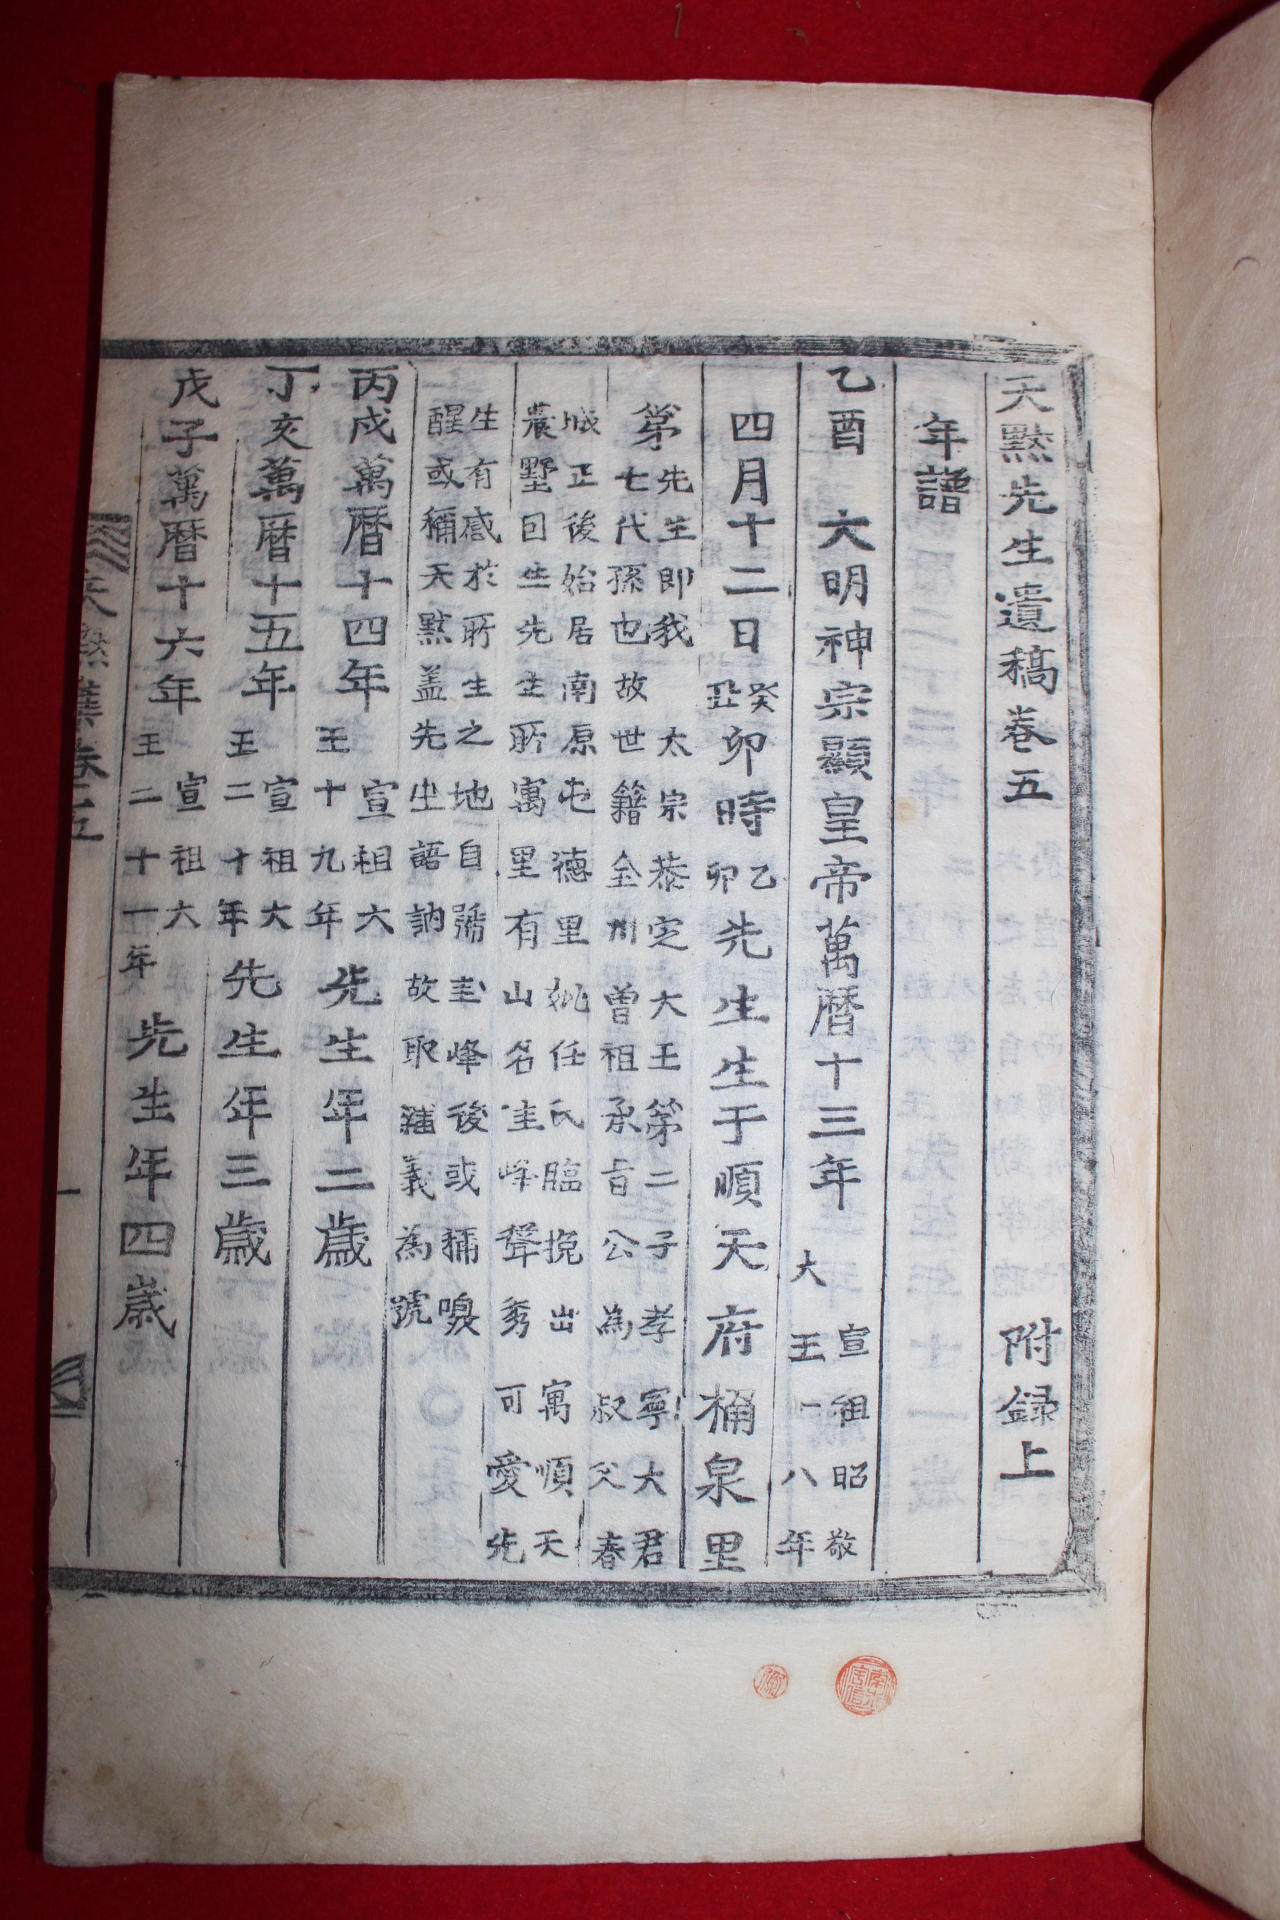 天默先生遺稿卷五 附録上
年譜
乙酉 大明神宗顯皇帝萬曆十三年 宣祖昭敬
大王一八年
四月十二日癸丑卯時乙卯先生生于順天府桶泉里
第
先生即我 太宗恭定大王第二子孝寧大君
七代孫也故世籍全州曽祖承旨公為叔父春
城正後始居南原屯德里妣任氏臨挽出寓順天
農墅回生先生所寓里有山名圭峰聳秀可愛先
生有感於所生之地自號圭峰後或稱
醒或稱天默盖先生語訥故取 義為號
丙戌萬曆十四年 宣祖大王十九年先生年二歲
丁亥萬曆十五年 宣祖大王二十年先生年三歲
戊子萬曆十六年 宣祖大王二十一年先生年四歲
天默集卷五 一